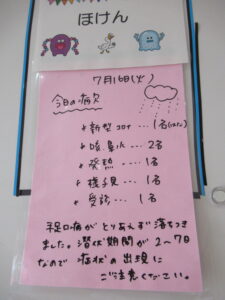 ほけん
7月16日(火)
今日の病欠
新型コロナ・・・1名
咳鼻水・・・2名
発熱・・・1名
様子見・・・1名
受診・・・1名
手足口病がとりあえず落ちつき
ました。潜伏期間が2~7日
なので症状の出現に
ご注意ください。